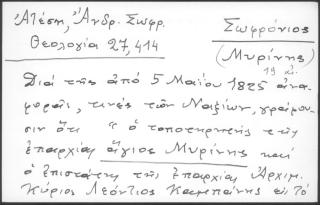 Ἀτέση, Ἀνδρ. Σωφρ.
Θεολογία 27, 414
Σωφρόνιος
(Μυρίνης)
19 αἰ.
Διά τῆς ἀπό 5 Μαΐου 1825 ἀνα-
φορᾶς, τινές τῶν Ναξίων, γράφου-
σιν ὅτι "ὁ τοποτηρητής τῆς
ἐπαρχίας ἅγιος Μυρίνης καί
ὁ ἐπιστάτης τῆς ἐπαρχίας Ἀρχιμ.
Κύριος Λεόντιος Καμπάνης εἰς τό